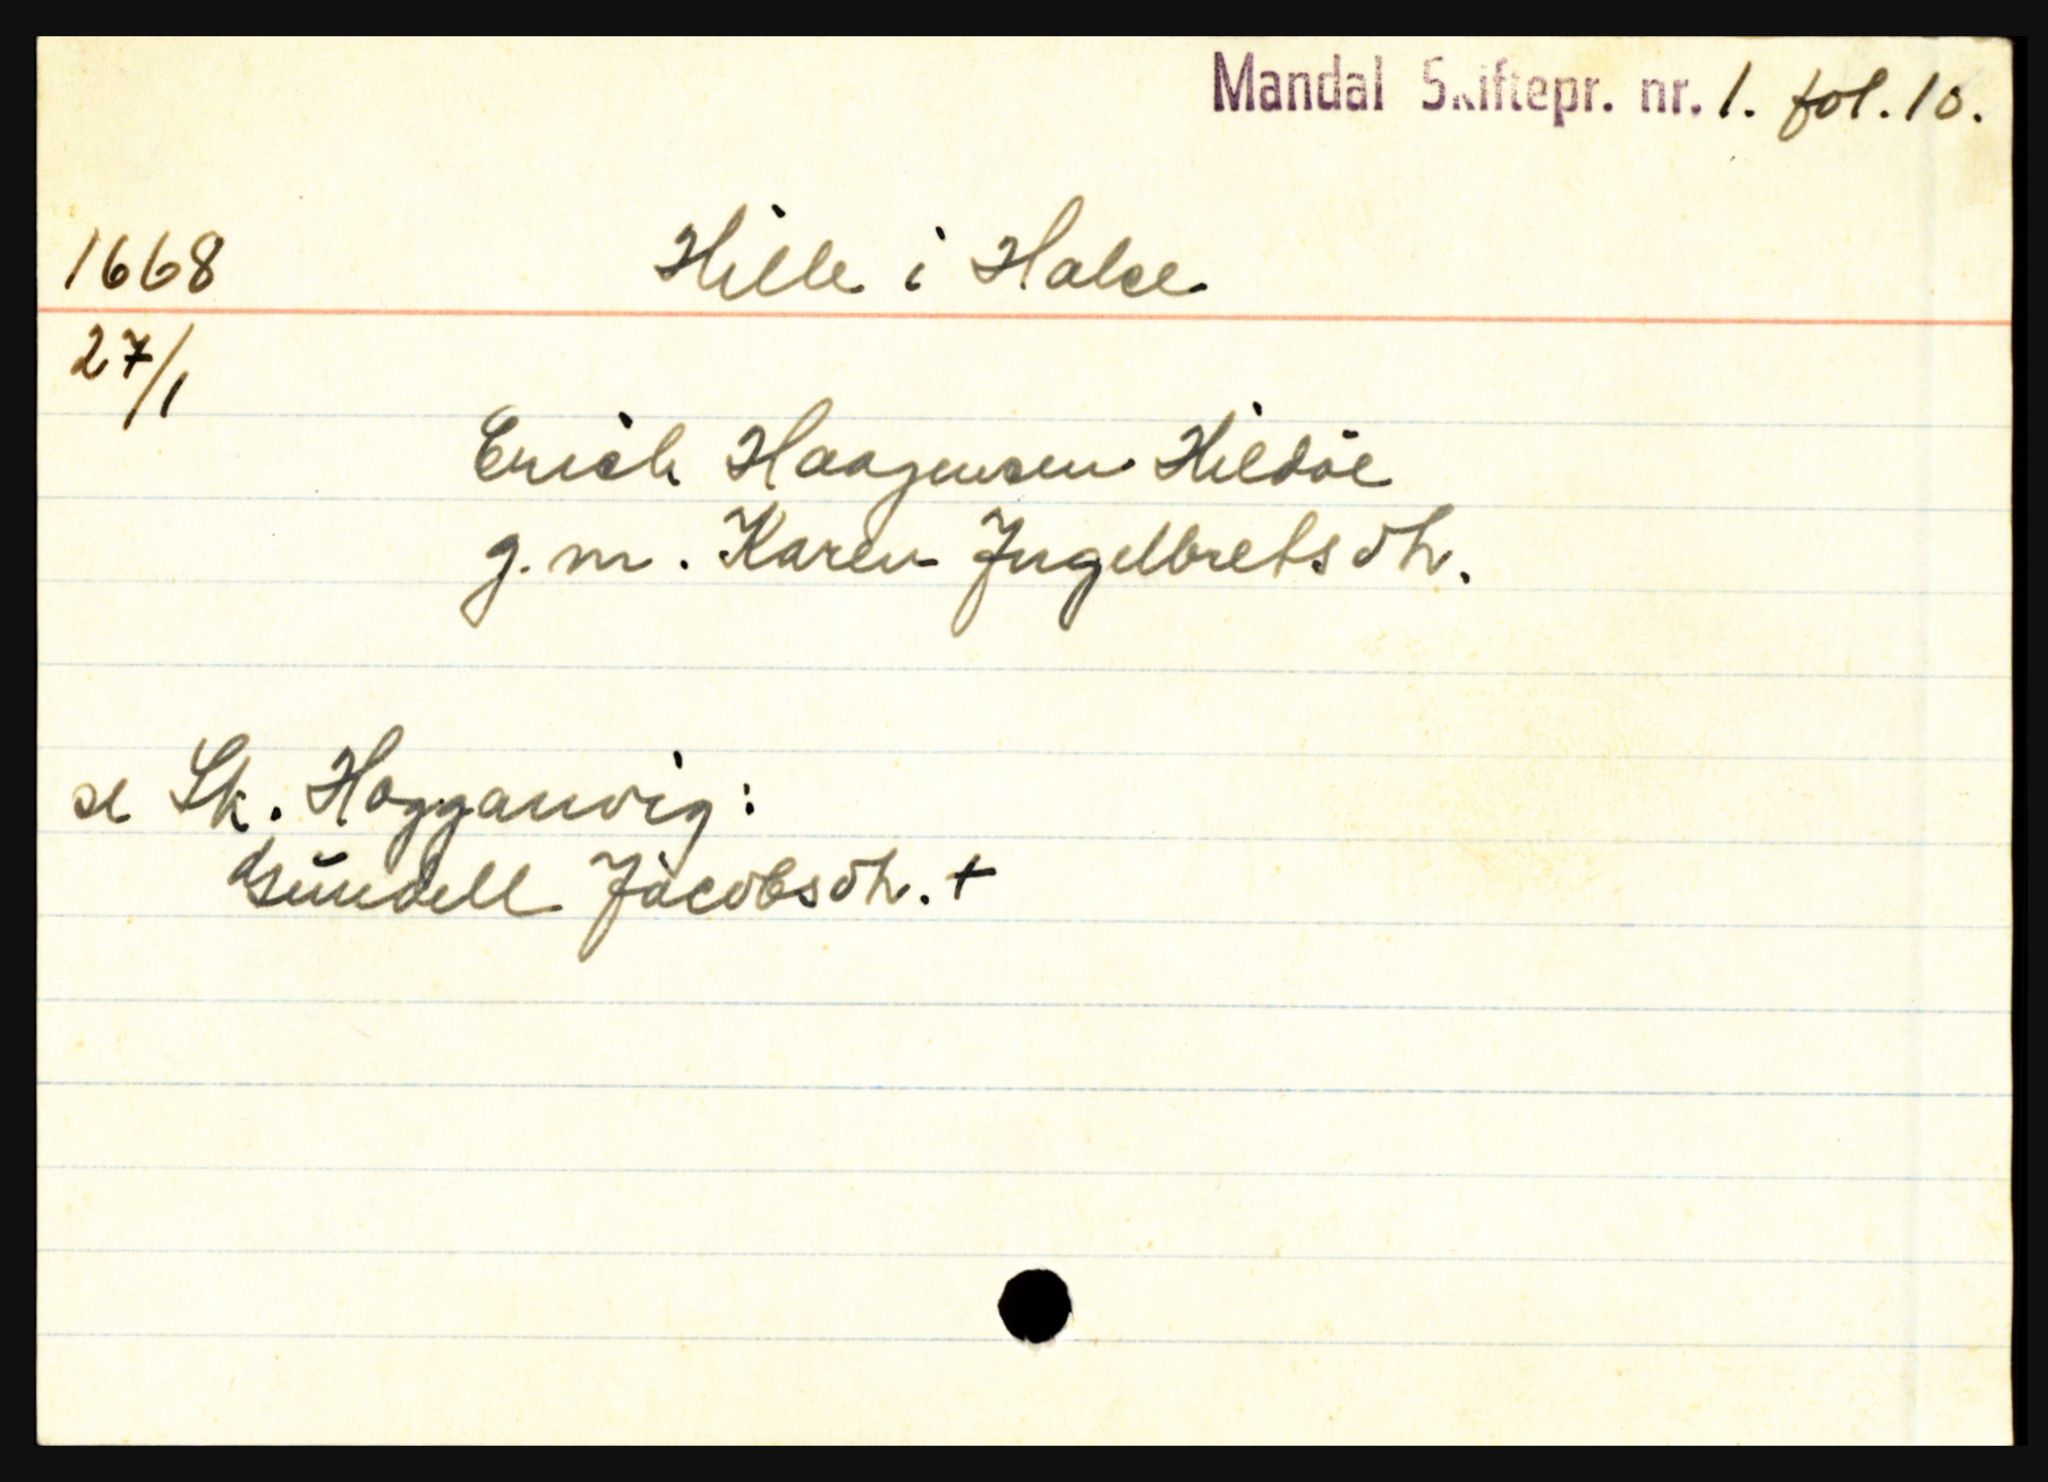 Mandal Skiftepr. nr. 1. fol. 10.
1668 Hille i Halse
27/1
Erich Haagensen Hildöe
g.m. Karen Ingelbretsdt.
se Sk. Hogganvig:
Gundell Jacobsdt. +